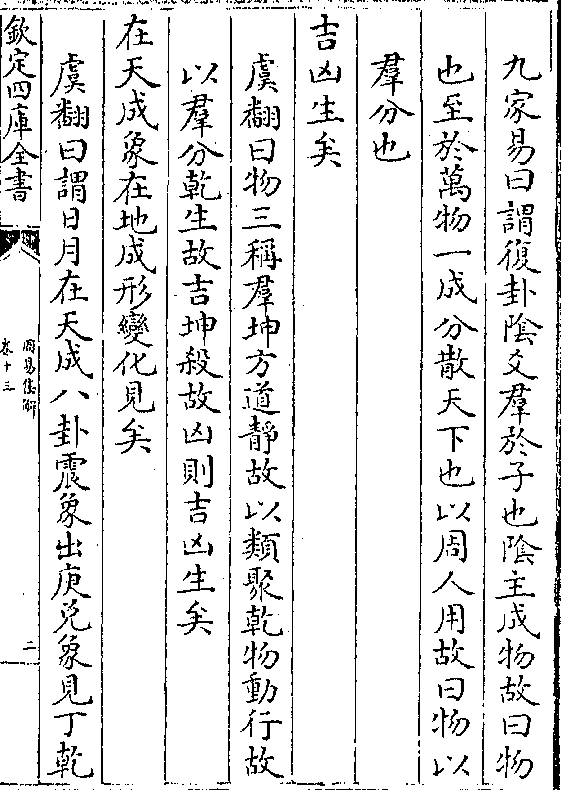 九家易曰謂復卦陰爻羣於子也陰主成物故曰物
也至於萬物一成分散天下也以周人用故曰物以
羣分也
吉凶生矣
虞翻曰物三稱羣坤方道靜故以類聚乾物動行故
以羣分乾生故吉坤殺故凶則吉凶生矣
在天成象在地成形變化見矣
虞翻曰謂日月在天成八卦震象出庚兌象見丁乾
欽定四庫全書
周易集解
卷十三
二